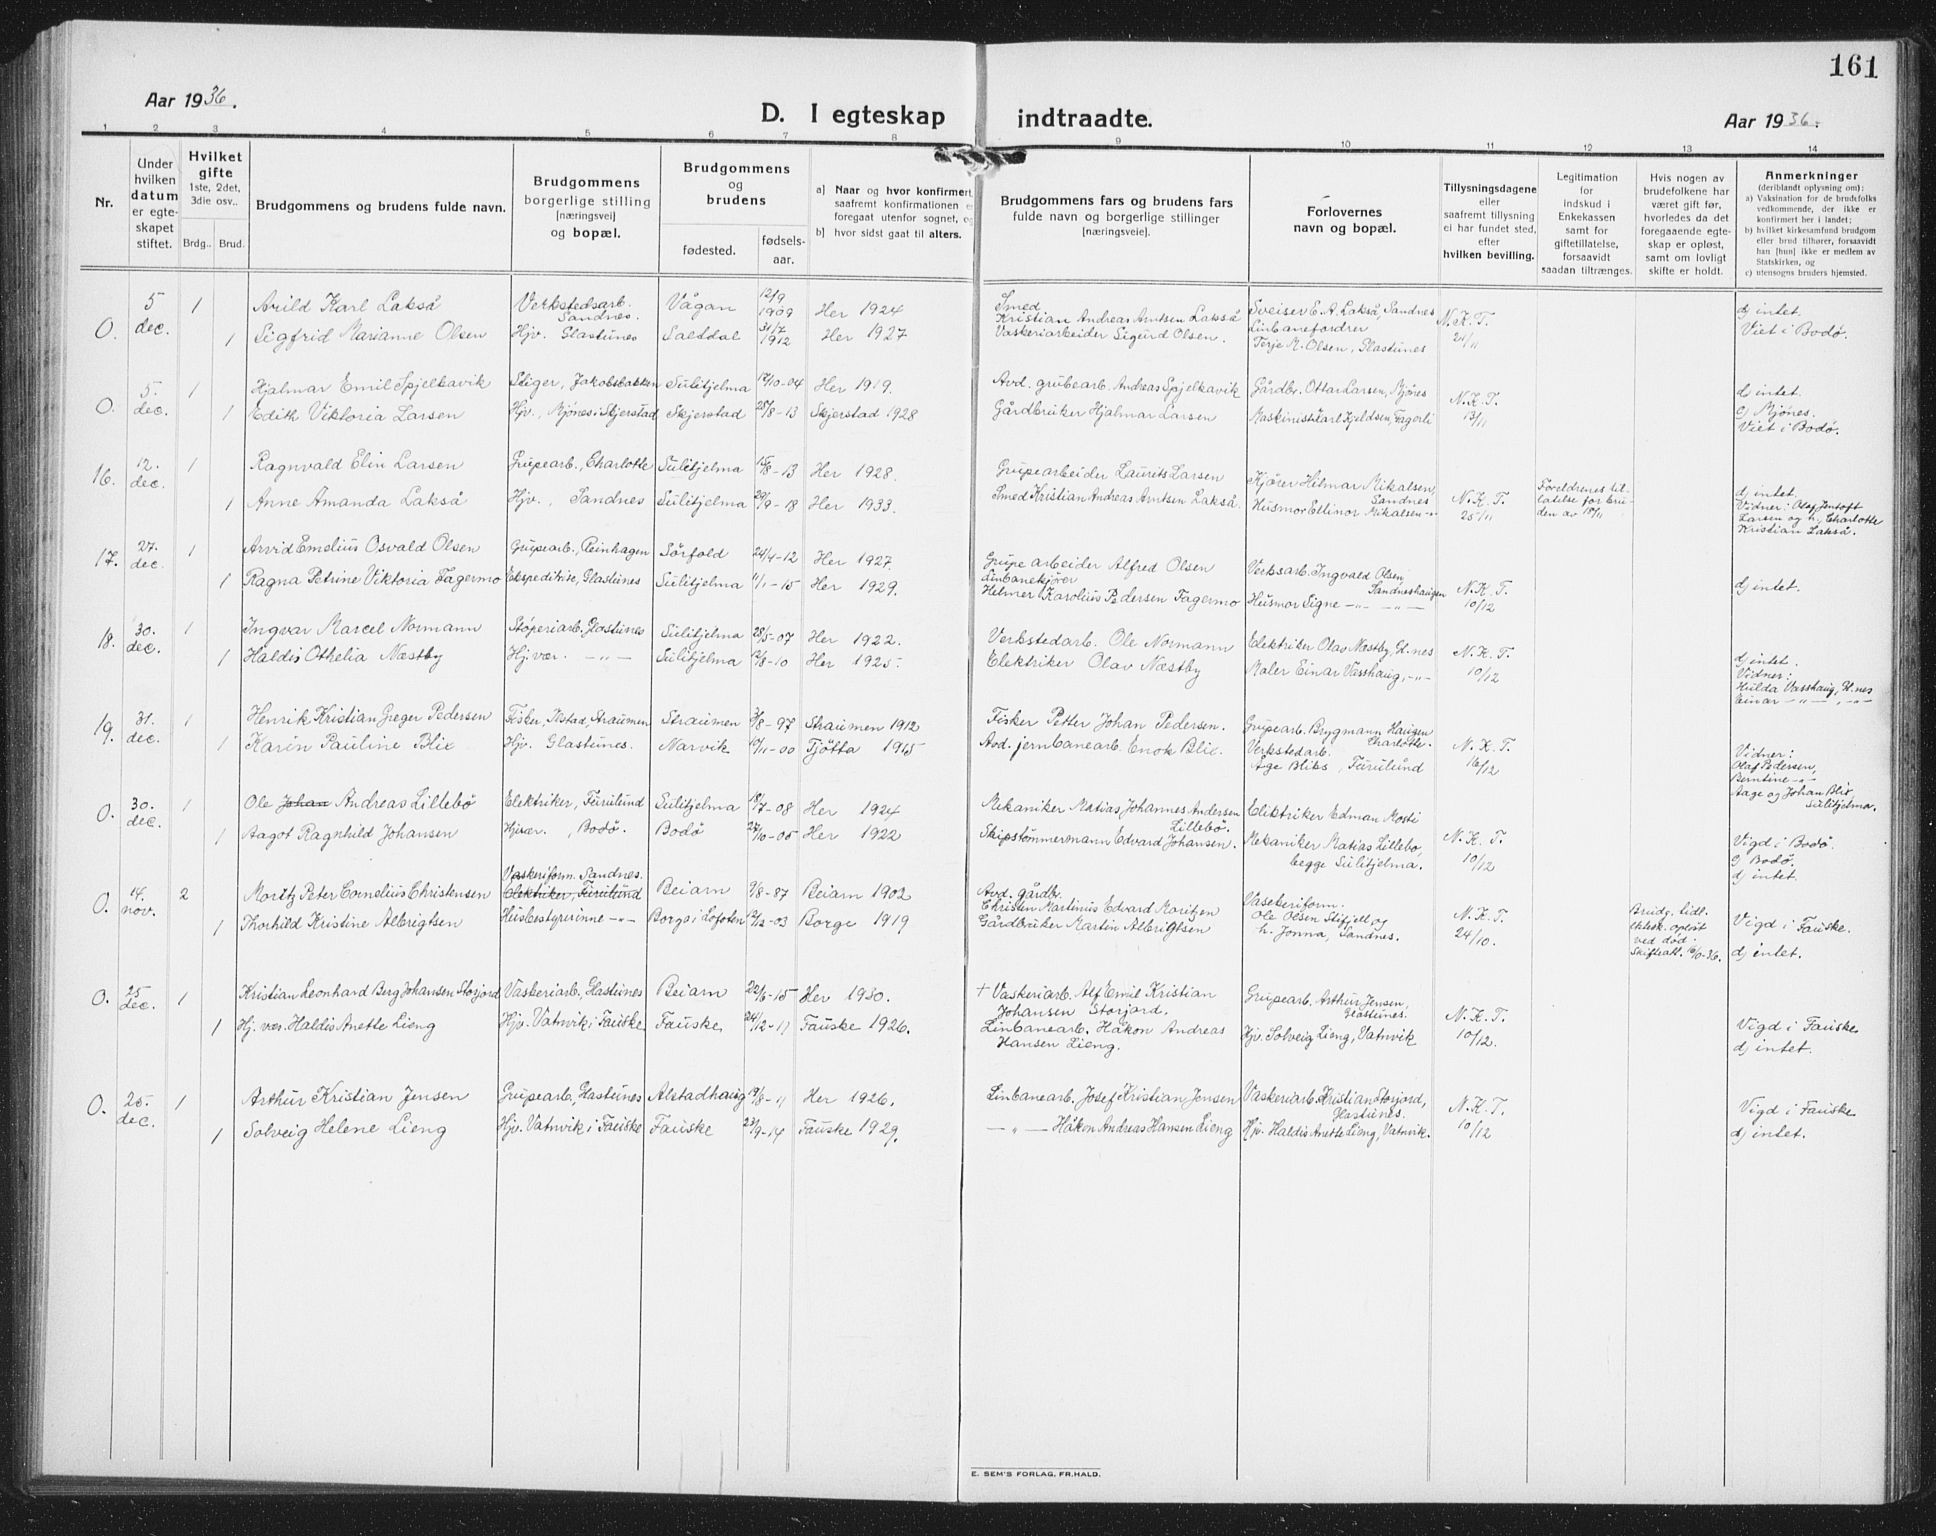 161
Aar 1936.
D. I egteskap indtraadte.
Aar 1936.
1 2 3 4 5 6 7 8 9 10 11 12 13 14
Nr.
Under hvilken datum er egteskapet stiftet.
Hvilket gifte 1ste, 2det, 3die osv..
Brdg.. Brud.
Brudgommens og brudens fulde navn.
Brudgommens borgerlige stilling [næringsvei] og bopæl.
Brudgommens og brudens
fødested.
fødselsaar.
a] Naar og hvor konfirmert, saafremt konfirmationen er foregaat utenfor sognet, og
b] hvor sidst gaat til alters.
Brudgommens fars og brudens fars fulde navn og borgerlige stillinger [næringsveie].
Forlovernes navn og bopæl.
Tillysningsdagene eller saafremt tillysning ei har fundet sted, efter hvilken bevilling.
Legitimation for indskud i Enkekassen samt for giftetillatelse, forsaavidt saadan tiltrænges.
Hvis nogen av brudefolkene har været gift før, hvorledes da det foregaaende egteskap er opløst, samt om lovligt skifte er holdt.
Anmerkninger (deriblandt oplysning om):
a) Vaksination for de brudefolks vedkommende, der ikke er konfirmert her i landet;
b) hvilket kirkesamfund brudgom eller brud tilhører, forsaavidt han [hun] ikke er medlem av Statskirken, og
c) utensogns bruders hjemsted.
O. 5 dec. 1 Arild Karl Lakså Verkstedsarb. Sandnes. Vågan 12/9 1909 Her 1924 Smed Kristian Andreas Arntsen Lakså Sveiser E. A. Lakså, Sandnes N. K. T. 21/11 d) intet.
1 Sigfrid Marianne Olsen Hjv. Glastunes Saltdal 31/7 1912 Her 1927 Vaskeriarbeider Sigurd Olsen. Linbanefordrer Terje M. Olsen, Glastunes Viet i Bodø.
O. 5. dec. 1 Hjalmar Emil Spjelkavik Stiger, Jakobsbakken Sulitjelma 17/10-04 Her 1919. Avd. grubearb. Andreas Spjelkavik Gårdbr. Ottar Larsen, Mjønes N. K. T. 13/11 d intet.
1 Edith Viktoria Larsen Hjv., Mjønes i Skjerstad Skjerstad 25/8-13 Skjerstad 1928 Gårdbruker Hjalmar Larsen Maskinist Karl Kjeldsen, Fagerli c) Mjønes. Viet i Bodø.
16. 12. dec. 1 Ragnvald Elin Larsen Grupearb., Charlotte Sulitjelma 15/8-13 Her 1928. Grupearbeider Laurits Larsen Kjører Hilmar Mikalsen, Sandnes N. K. T. 25/11 Foreldrenes tillatelse for bruden av 18/11 d) intet.
1 Anne Amanda Lakså Hjv., Sandnes Sulitjelma 29/9-18 Her 1933. Smed Kristian Andreas Arntsen Lakså. Husmor Ellinor Mikalsen -"- Vidner: Olaf Jentoft Larsen og h, Charlotte Kristian Lakså.
17. 27. dec. 1 Arvid Emelius Osvald Olsen Grupearb., Reinhagen Sørfold 24/4-12 Her 1927. Grupearbeider Alfred Olsen Verksarb. Ingvald Olsen, Sandneshaugen N. K. T. 10/12 d) intet.
1 Ragna Petrine Viktoria Fagermo Ekspeditrise, Glastunes Sulitjelma 11/1-15 Her 1929. Linbanekjører Helmer Karolius Pedersen Fagermo Husmor Signe -"- -"-
18. 30. dec. 1 Ingvar Marcel Normann Støperiarb. Glastunes Sulitjelma 28/5-07 Her 1922. Verkstedarb. Ole Normann Elektriker Olav Næstby, Gl.nes N. K. T. 10/12 d) intet.
1 Haldis Othelia Næstby Hj.vær. -"- Sulitjelma 12/8-10 Her 1925. Elektriker Olav Næstby Maler Einar Vasshaug, -"- Vidner: Hulda Vasshaug, Gl.nes Einar -"-, -"-
19. 31. dec. 1 Henrik Kristian Greger Pedersen Fisker, Straumen Straumen 3/8-97 Straumen 1912 Fisker Petter Johan Pedersen. Grupearb. Brygmann Haugen Charlotte. N. K. T. 16/12 Vidner:
1 Karin Pauline Blix Hjv. Glastunes. Narvik 19/11-00 Tjøtta 1915 Avd. jernbanearb. Enok Blix. Verkstedarb. Åge Bliks, Furulund Olaf Pedersen, Berntine -"- Aage og Johan Blix, Sulitjelma.
O. 30. dec. 1 Ole Johan Andreas Lillebø Elektriker, Furulund Sulitjelma 18/7-08 Her 1924 Mekaniker Matias Johannes Andersen Lillebø. Elektriker Edman Mosti N. K. T. 10/12 Vigd i Bodø.
1 Aagot Ragnhild Johansen Hjvær., Bodø. Bodø 27/10-05 Her 1922 Skipstømmermann Edvard Johansen. Mekaniker Matias Lillebø, begge Sulitjelma. c) Bodø. d) intet.
O. 14. nov. 2 Moritz Peter Cornelius Christensen Vaskeriform. Sandnes. Elektriker, Furulund Beiarn 9/8-87 Beiarn 1902 Avd. gårdbr. Christen Martinus Edvard Moritzen Vaskeriform. Ole Olsen Stifjell og h. Jonna, Sandnes. N. K. T. 24/10. Brudg. tidl. ektesk. opløst ved død. Skifteatt. 16/10-36. Vigd i Fauske.
1 Thorhild Kristine Albrigtsen Husbestyrerinne -"- Borge i Lofoten 12/12-03 Borge 1919 Gårdbruker Martin Albrigtsen d) intet.
O. 25 dec. 1 Kristian Leonhard Berg Johansen Storjord Vaskeriarb., Glastunes Beiarn 22/6-15 Her 1930. + Vaskeriarb. Alf Emil Kristian Johansen Storjord. Grupearb. Arthur Jensen, Glastunes. N. K. T. 10/12. Vigd i Fauske
1 Hj. vær. Haldis Anette Lieng Hjv. Vatnvik i Fauske Fauske 24/12-11 Fauske 1926. Linbanearb. Håkon Andreas Hansen Lieng. Hjv. Solveig Lieng, Vatnvik d) intet.
O. 25. dec. 1 Arthur Kristian Jensen Grupearb, Glastunes Alstadhaug 19/8-11 Her 1926. Linbanearb. Josef Kristian Jensen Vaskeriarb. Kristian Storjord, Glastunes. N. K. T. 10/12 Vigd i Fauske
1 Solveig Helene Lieng Hjv. Vatnvik i Fauske Fauske 23/9-14 Fauske 1929. -"- Håkon Andreas Hansen Lieng Hjv. Haldis Anette Lieng, Vatnvik. d) intet.
E. SEM'S FORLAG, FR.HALD.